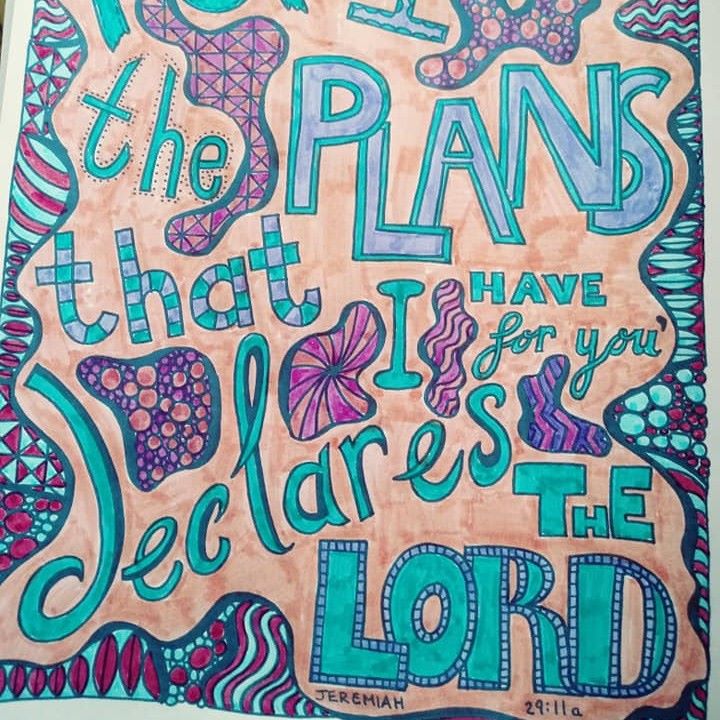 the PLANS
that I HAVE
for you'
declares
THE
LORD
JEREMIAH 29:11a